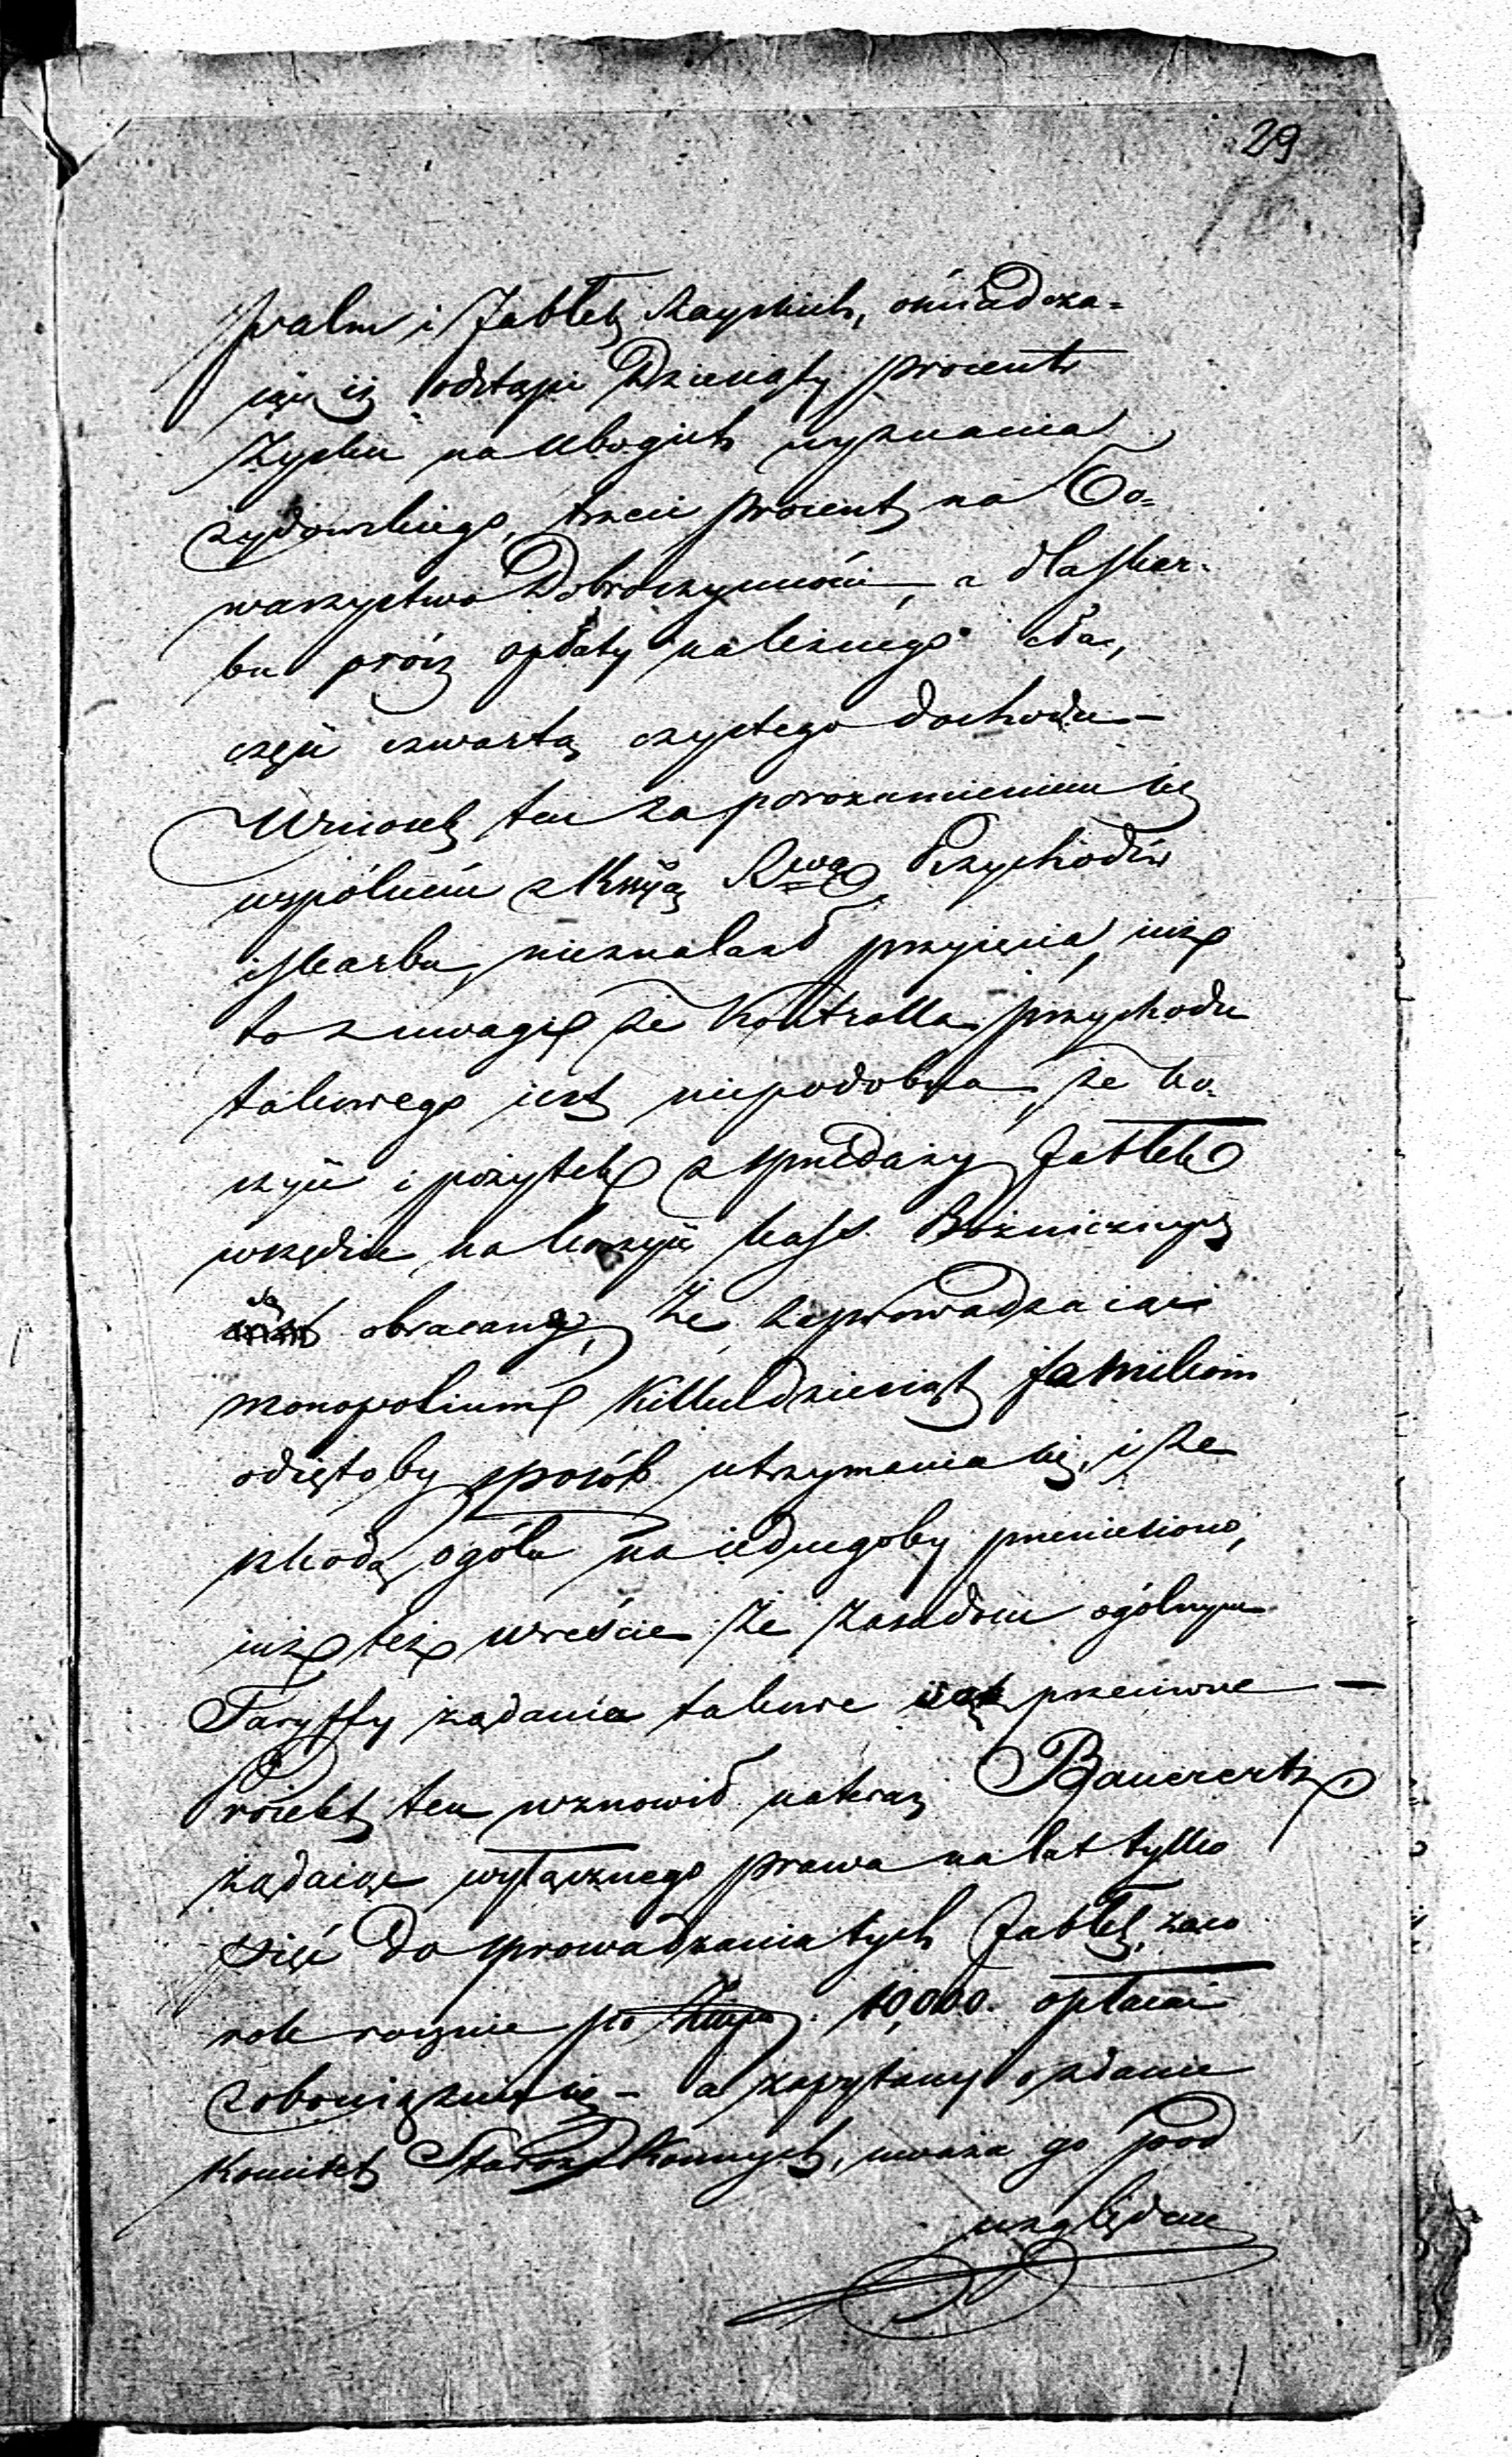 29
palm i Jabłek Rayskich, oświadcza=
iąc iż odstąpi Dziesiąty procent
Zysku na Ubogich wyznania
żydowskiego, trzeci procent na To=
warzystwo Dobroczynności, a dla Skar=
bu prócz opłaty należnego cła,
część czwartą czystego dochodu —
Wniosek ten za porozumieniem się
wspólném z Kssyą Rwą Przychodów
i Skarbu, nieznalazł przyięcia, iuż
to z uwagi że Kontrolla przychodu
takowego iest niepodobna, że ko=
rzyść i pożytek z sprzedaży Jabłek
wszędzie na korzyść kass Bóżnicznych
są obracane, że zaprowadzaiąc
monopolium Kilkudziesiąt familiom
odiętoby sposób utrzymania się, i że
szkodą ogółu na iednegoby przeniesiono,
iuż też wreście że zasadom ogólnym
Taryffy żądania takowe są przeciwne —
Proiekt ten wznowił nateraz Bauerertz
żądaiąc wyłącznego prawa na lat tylko
pięć do sprowadzania tych Jabłek, za co
rok rocznie po 10,000. opłacać
zobowiązuie się — a zapytany o zdanie
Komitet Starozakonnych, uważa go pod
względem